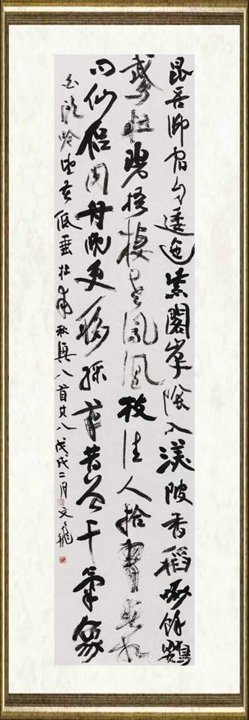 昆吾御宿自逶迤紫閣峯陰入渼陂香稻啄餘鸚
鵡粒碧梧棲老鳳凰枝佳人拾翠春相
问仙侣同舟晚更移綵筆昔曾干氣象
白頭吟望苦低垂杜甫秋興八首其八戊戌二月文飛